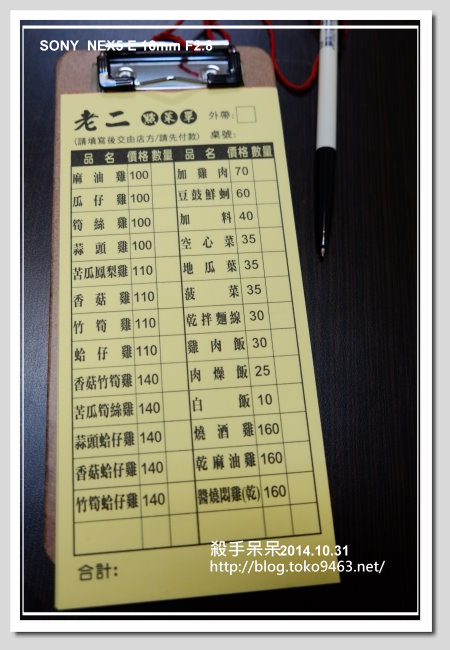 SONY NEX5 E 16mm F2.8
老二 點菜單 外帶:
(請填寫後交由店方/請先付款) 桌號:
品名 價格 數量 品名 價格 數量
麻油雞 100 加雞肉 70
瓜仔雞 100 豆鼓鮮蚵 60
筍絲雞 100 加料 40
蒜頭雞 100 空心菜 35
苦瓜鳳梨雞 110 地瓜葉 35
香菇雞 110 菠菜 35
竹筍雞 110 乾拌麵線 30
蛤仔雞 110 雞肉飯 30
香菇竹筍雞 140 肉燥飯 25
苦瓜筍絲雞 140 白飯 10
蒜頭蛤仔雞 140 燒酒雞 160
香菇蛤仔雞 140 乾麻油雞 160
竹筍蛤仔雞 140 醬燒悶雞(乾) 160
合計:
殺手呆呆2014.10.31
http://blog.toko9463.net/